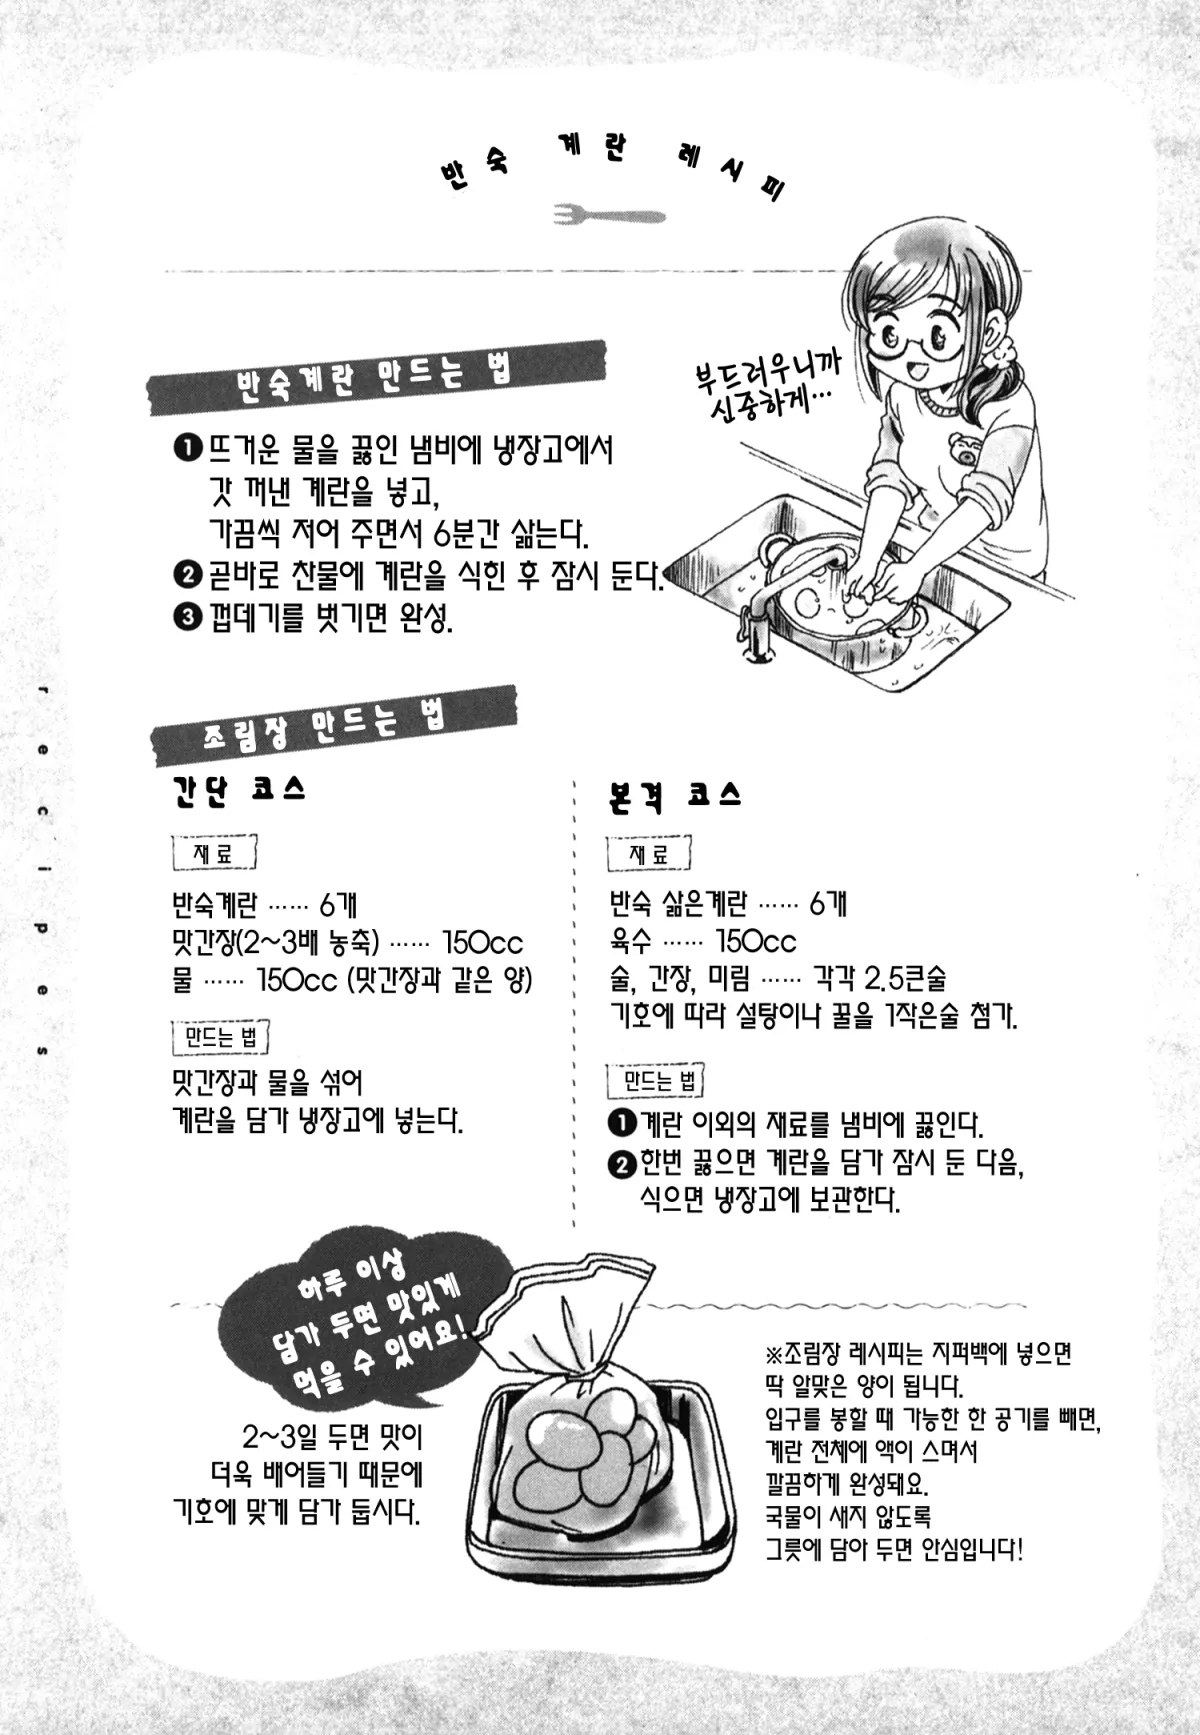 반숙 계란 레시피
반숙계란 만드는 법
부드러우니까
신중하게…
❶ 뜨거운 물을 끓인 냄비에 냉장고에서
갓 꺼낸 계란을 넣고,
가끔씩 저어 주면서 6분간 삶는다.
❷ 곧바로 찬물에 계란을 식힌 후 잠시 둔다.
❸ 껍데기를 벗기면 완성.
recipes
조림장 만드는 법
간단 코스
재료
반숙계란 …… 6개
맛간장(2~3배 농축) …… 150cc
물 …… 150cc (맛간장과 같은 양)
만드는 법
맛간장과 물을 섞어
계란을 담가 냉장고에 넣는다.
본격 코스
재료
반숙 삶은계란 …… 6개
육수 …… 150cc
술, 간장, 미림 …… 각각 2.5큰술
기호에 따라 설탕이나 꿀을 1작은술 첨가.
만드는 법
❶ 계란 이외의 재료를 냄비에 끓인다.
❷ 한번 끓으면 계란을 담가 잠시 둔 다음,
식으면 냉장고에 보관한다.
하루 이상
담가 두면 맛있게
먹을 수 있어요!
2~3일 두면 맛이
더욱 배어들기 때문에
기호에 맞게 담가 둡시다.
※조림장 레시피는 지퍼백에 넣으면
딱 알맞은 양이 됩니다.
입구를 봉할 때 가능한 한 공기를 빼면,
계란 전체에 액이 스며서
깔끔하게 완성돼요.
국물이 새지 않도록
그릇에 담아 두면 안심입니다!